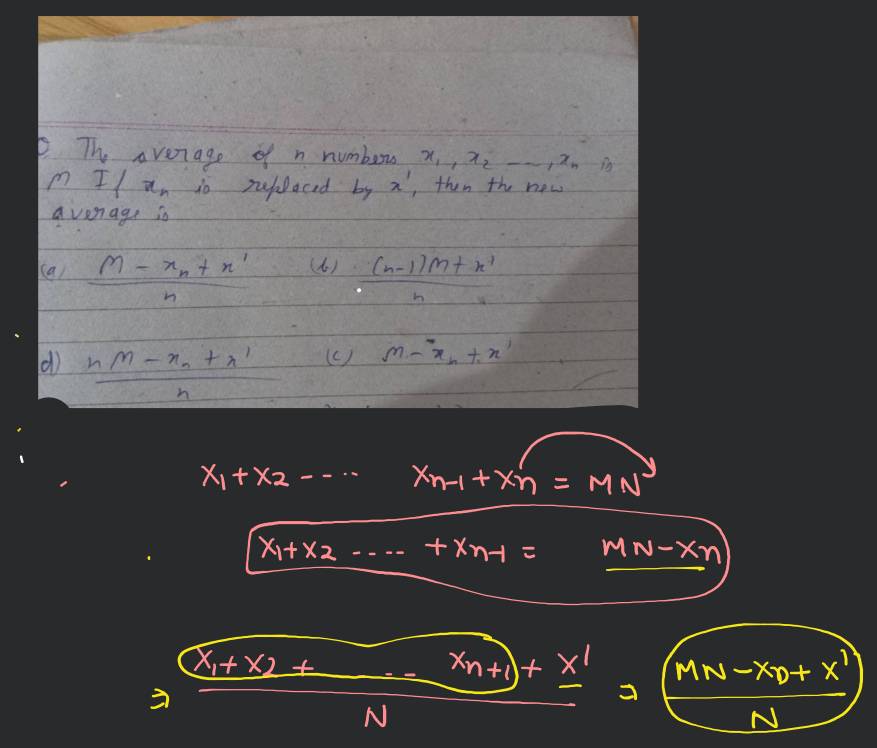 Q The average of n numbers x₁, x₂ ---, xₙ is
M If xₙ is replaced by x', then the new
average is
(a) M - xₙ + x' / n (b) (n-1)M + x' / n
d) nM - xₙ + x' / n (c) M - xₙ + x'
X₁ + X2 ----- Xn-1 + Xn = MN
X₁ + X2 ..... + Xn-1 = MN - Xn
⇒ X₁ + X2 + ... Xn+1 + X' / N ⇒ MN - Xn + X' / N